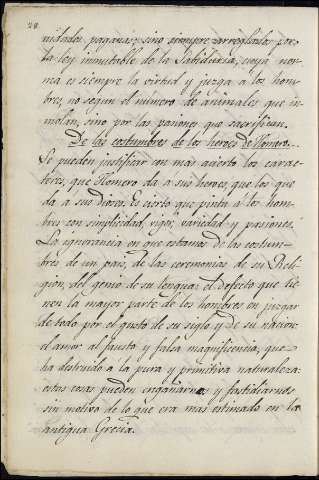 28
nidades paganas; sino siempre arreglados por
la ley inmutable de la Sabiduria, cuya nor-
ma es siempre la virtud y juzga a los hom-
bres, no segun el número de animales que in-
molan, sino por las pasiones que sacrifican.
De las costumbres de los heroes de Homero...
Se pueden justificar con más acierto los carac-
téres, que Homero da a sus heroes, que los que
da a sus dioses. Es cierto que pinta a los hom-
bres con simplicidad, vigor, variedad y pasiones.
La ignorancia en que estamos de las costum-
bres de un pais, de las ceremonias de su Reli-
gion, del genio de su lengua; el defecto que tie-
nen la mayor parte de los hombres en juzgar
de todo por el gusto de su siglo y de su nacion:
el amor al fausto y falsa magnificencia, que
ha destruido a la pura y primitiva naturaleza:
estas cosas pueden engañarnos y fastidiarnos
sin motivo de lo que era mas estimado en la
antigua Grecia.